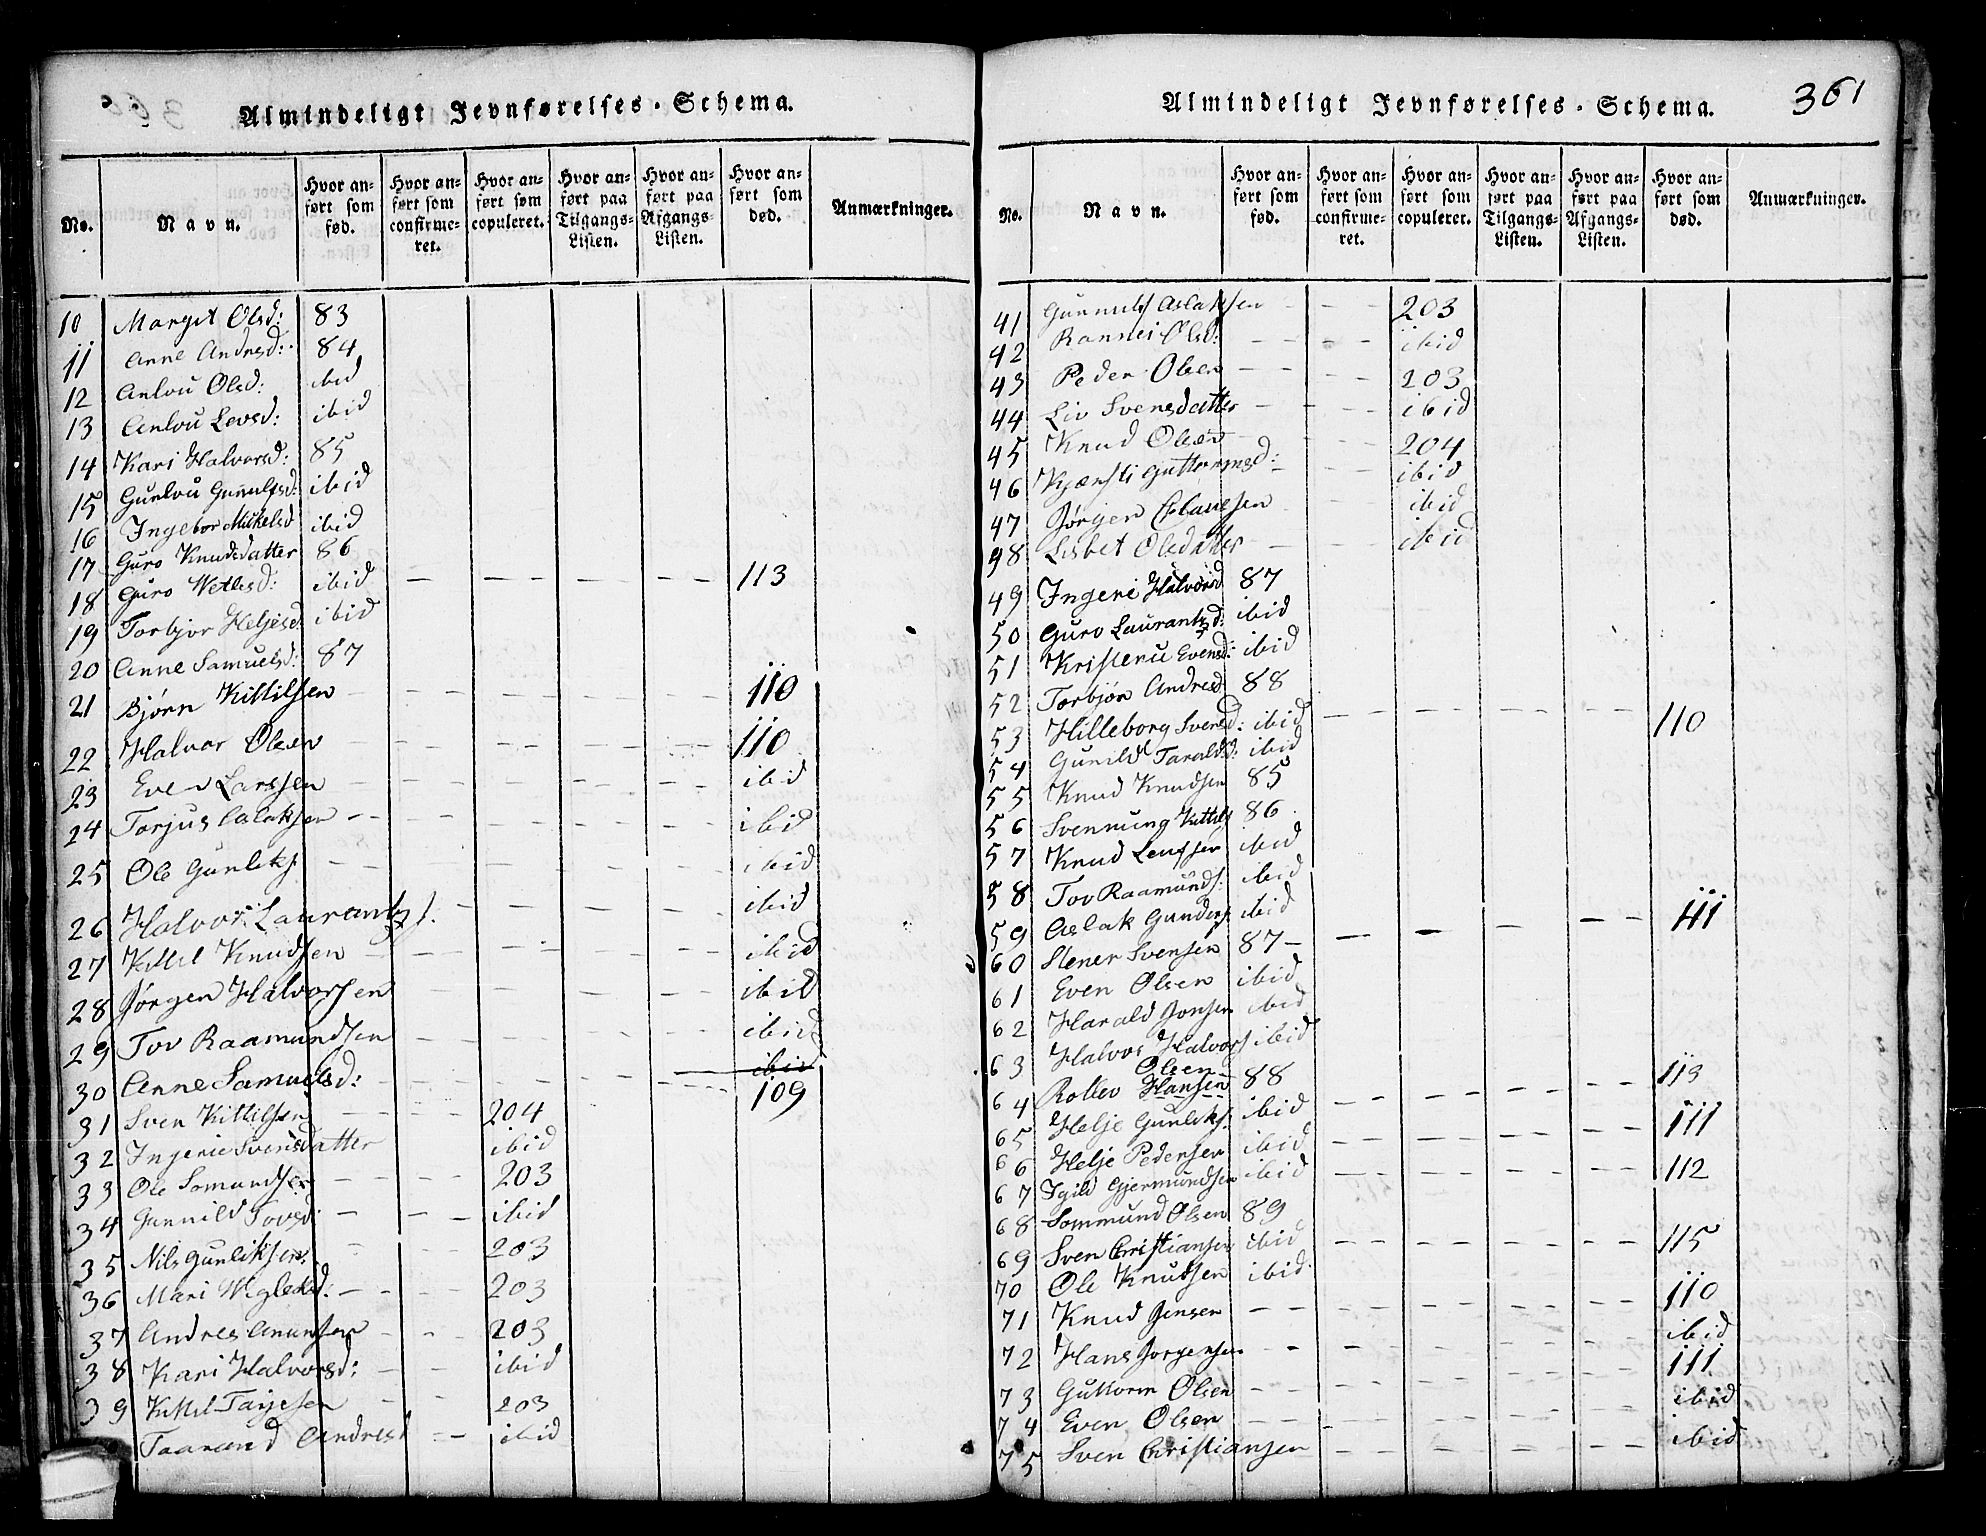 Almindeligt Jevnførelses-Schema.
No. | Navn. | Hvor anført som fød. | Hvor anført som confirmeret. | Hvor anført som copuleret. | Hvor anført paa Tilgangs-Listen. | Hvor anført paa Afgangs-Listen. | Hvor anført som død. | Anmærkninger.
10 Margit Olsd: 83
11 Anne Andresd: 84
12 Anlou Olsd: ibid
13 Anlou Levsd: ibid
14 Kari Halvorsd: 85
15 Gunlou Gunulfsd: ibid
16 Ingebor Mickelsd ibid
17 Guro Knudsdatter 86
18 Guro Wetlesd: ibid — — — — — — 113
19 Torbjor Heljesd: ibid
20 Anne Samuelsd: 87
21 Bjørn Kittilsen — — — — — — 110
22 Halvor Olsen — — — — — — 110
23 Even Larssen — — — — — ibid
24 Torjus Aslaksen — — — — — ibid
25 Ole Gunleks — — — — — ibid
26 Halvor Laurantzs. — — — — ibid
27 Kittil Knudsen — — — — — ibid
28 Jørgen Halvorsen — — — — ibid
29 Tov Raamundsen — — — — ibid
30 Anne Samuelsd: — — — — ibid 109
31 Sven Kittilsen — — — 204
32 Ingerie Svensdatter ibid
33 Ole Somundsen — — — 203
34 Gunnild Tovsd: — — — ibid
35 Nils Gunliksen — — 203
36 Mari Wigleksd: — — — 203
37 Andres Anunsen — — 203
38 Kari Halvorsd: — — ibid
39 Kittil Tarjesen — — 203
Taarand Andresd — — ibid
Almindeligt Jevnførelses-Schema. 361
No. | Navn. | Hvor anført som fød. | Hvor anført som confirmeret. | Hvor anført som copuleret. | Hvor anført paa Tilgangs-Listen. | Hvor anført paa Afgangs-Listen. | Hvor anført som død. | Anmærkninger.
41 Gunnulf Aslaksen — — — 203
42 Rannei Olsd: — — — ibid
43 Peder Olsen — — — 203
44 Liv Svensdatter — — — ibid
45 Knud Olsen — — — 204
46 Kjærsti Guttormsd: — — ibid
47 Jørgen Clausen ibid
48 Lisbet Olsdatter — — ibid
49 Ingeri Halvorsd 87
50 Guro Laurantzd: ibid
51 Kristenu Evensd: ibid
52 Torbjør Andresd 88
53 Hilleborg Svensd: ibid — — — — — 110
54 Gunild Taraldsd: ibid
55 Knud Knudsen 85
56 Svennung Kittils 86
57 Knud Leufsen ibid
58 Tov Raamunds: ibid
59 Aslak Gunders. ibid — — — — 111
60 Stener Svensen 87 —
61 Even Olsen ibid
62 Harald Jonsen ibid
63 Halvor Halvors ibid
Olsen
64 Rollev Hansen 88 — — — — — 113
65 Helje Gunleks. ibid — — — — — 111
66 Helje Pedersen ibid
67 Igild Gjermundsen ibid — — — — — 112
68 Sommund Olsen 89
69 Sven Christiansen ibid — — — — — 115
70 Ole Knudsen ibid
71 Knud Jensen — — — — — 110
72 Hans Jorgensen — — — — — ibid
73 Guttorm Olsen — — — — — 111
74 Even Olsen — — — — — ibid
75 Sven Christiansen — — — — ibid